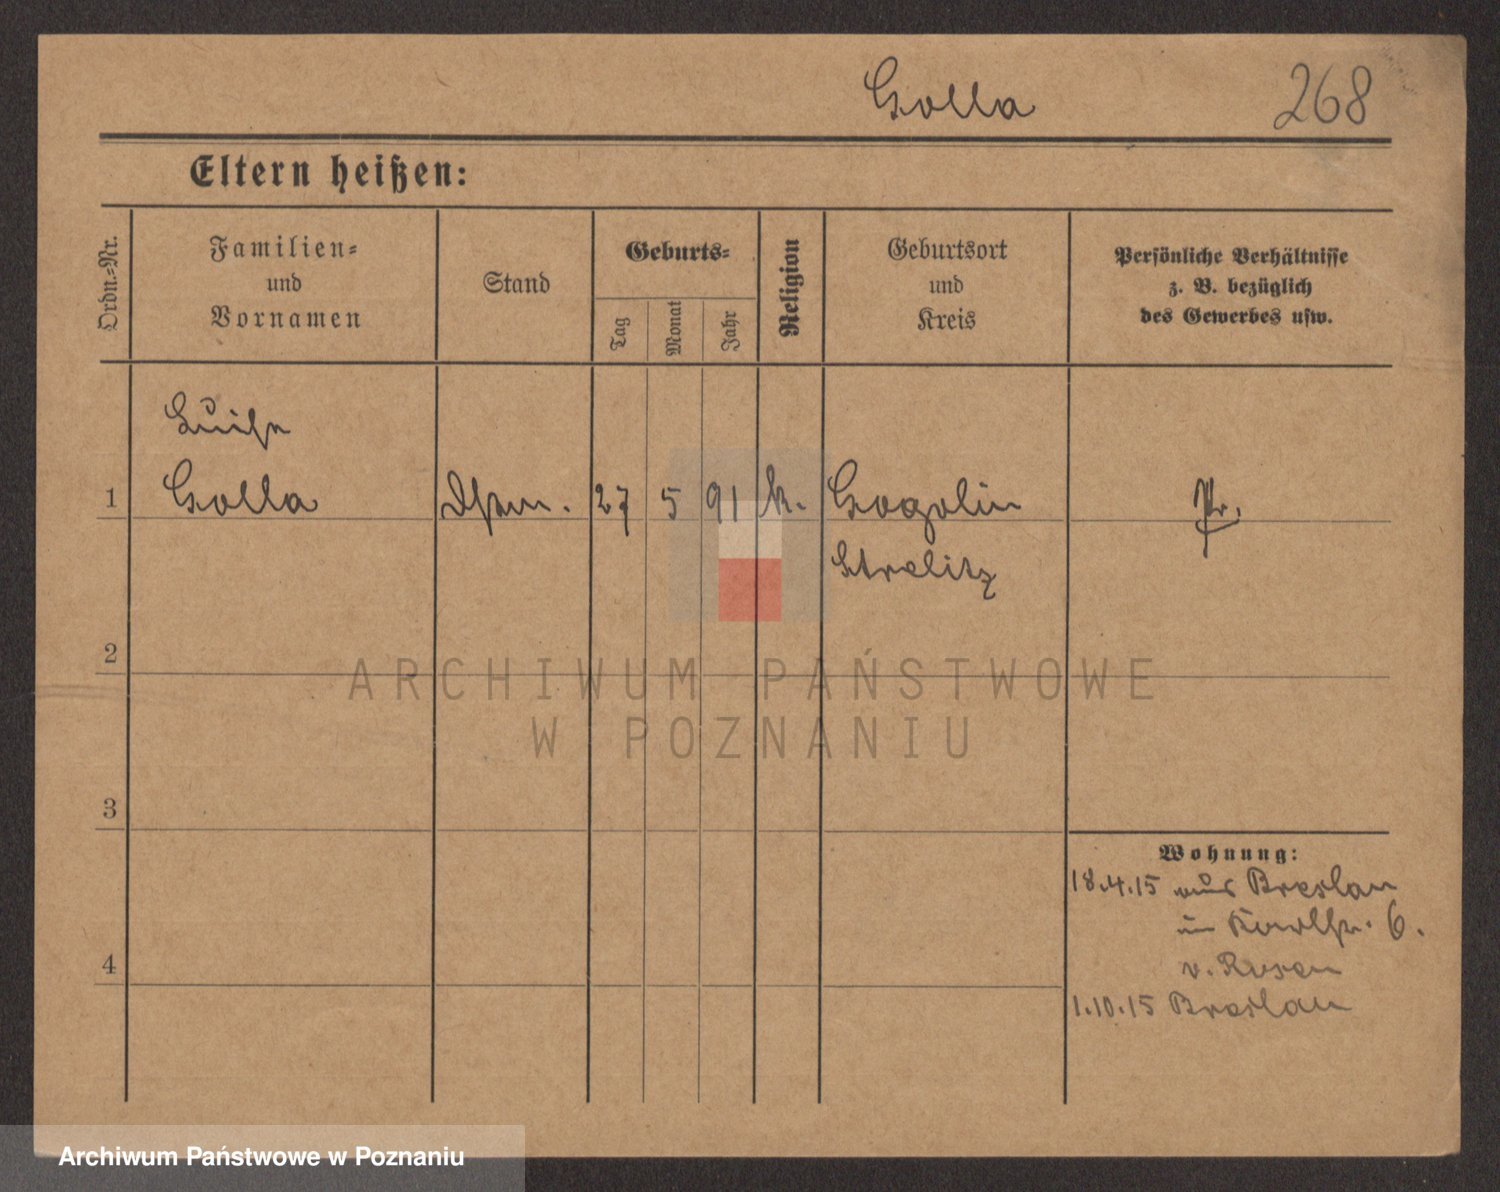 Golla 268
Eltern heißen:
Ordn.-Nr.
Familien-
und
Vornamen
Stand
Geburts-
Tag
Monat
Jahr
Religion
Geburtsort
und
Kreis
Persönliche Verhältnisse
z. B. bezüglich
des Gewerbes usw.
Luise
1 Golla 27 5 91 k. Gogolin Pr.
Strelitz
2
ARCHIWUM PAŃSTWOWE
W POZNANIU
3
Wohnung:
18.4.15 aus Breslau
in Karlstr. 6.
v. Rosen
4
1.10.15 Breslau
Archiwum Państwowe w Poznaniu